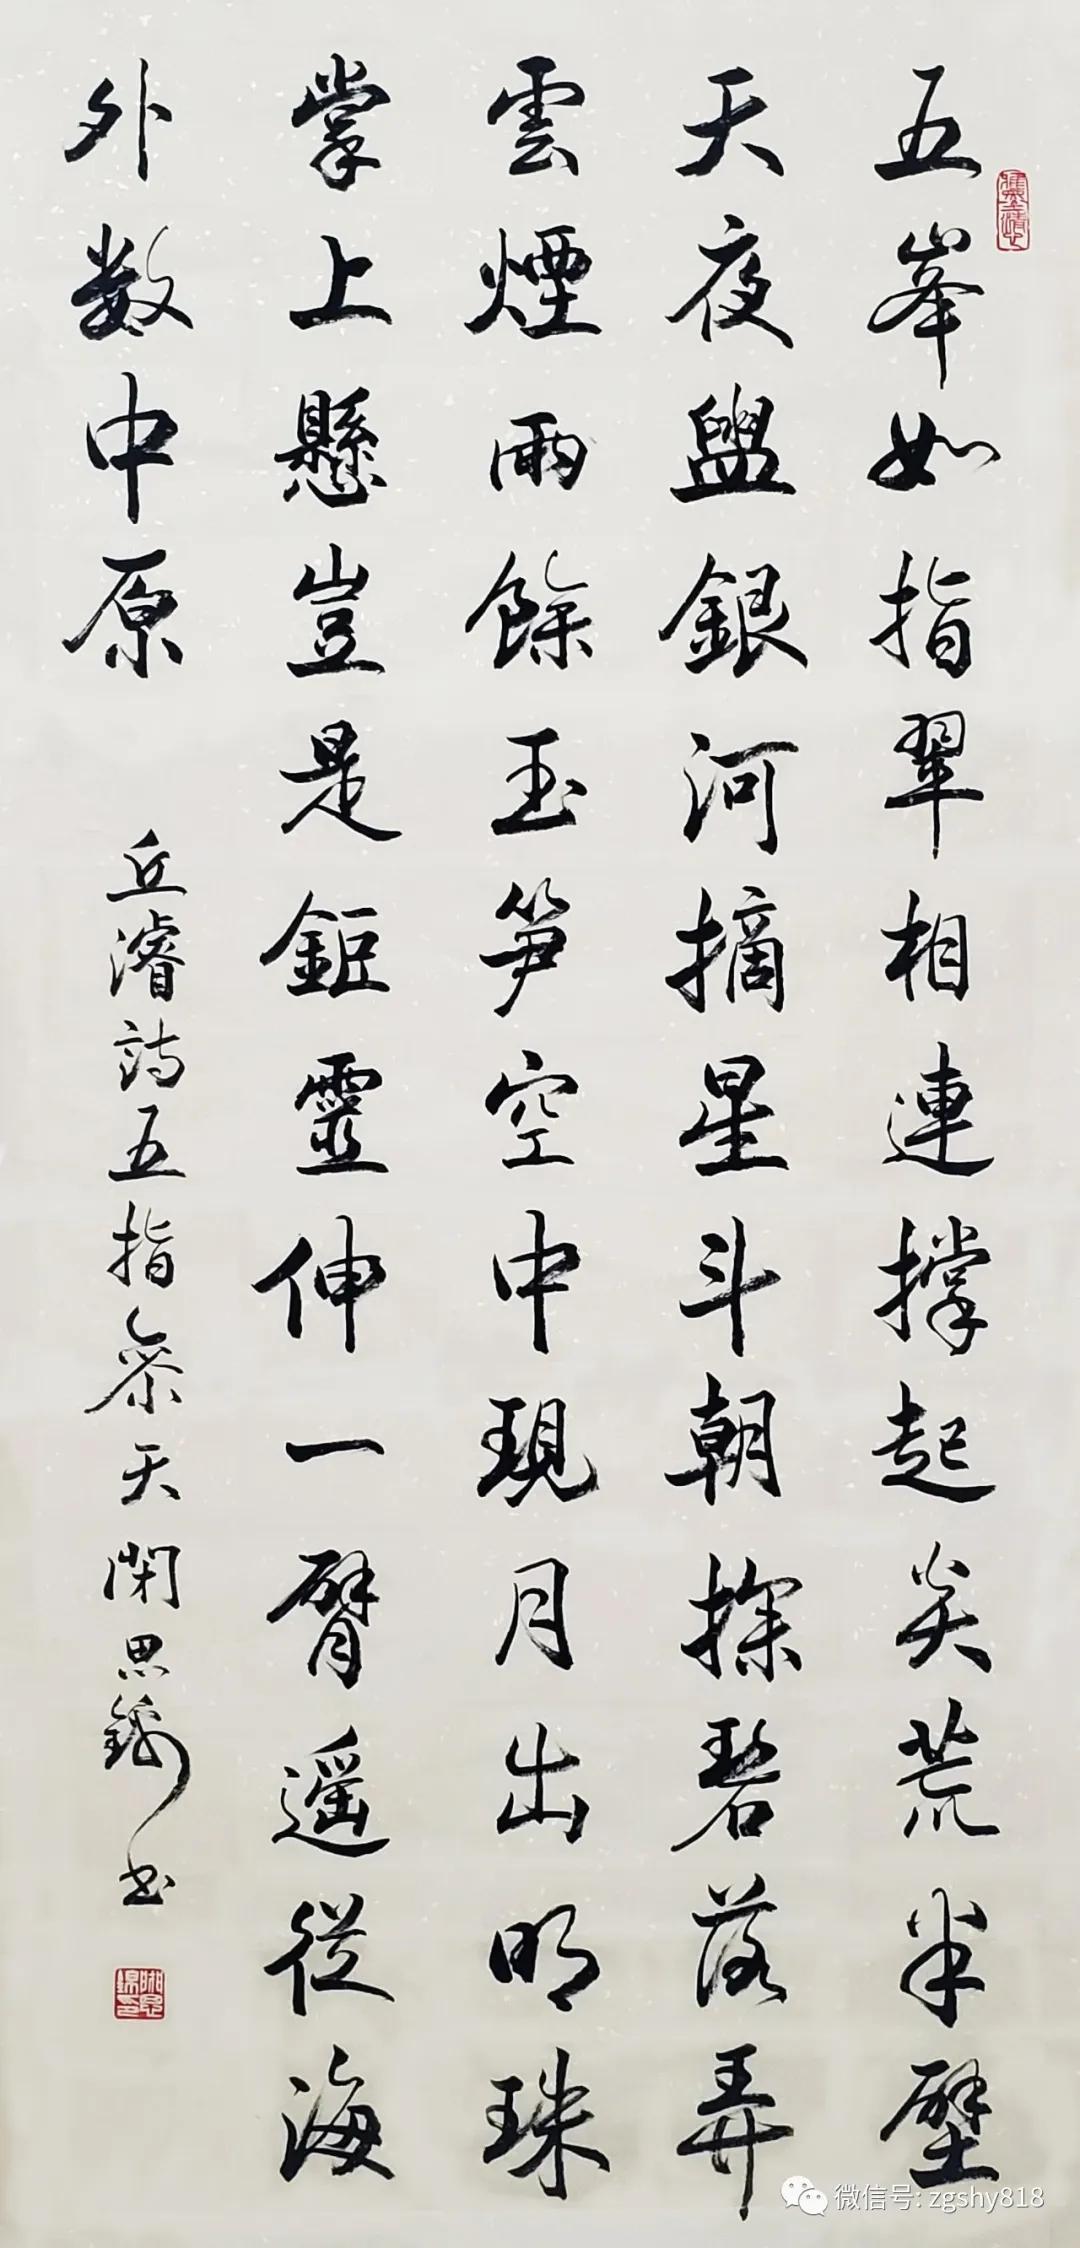 五峯如指翠相連撐起炎荒半壁
天夜盥銀河摘星斗朝探碧落弄
雲煙雨餘玉笋空中現月出明珠
掌上懸豈是鉅靈伸一臂遥從海
外数中原
丘濬詩五指參天 閑思书
微信号: zgshy818